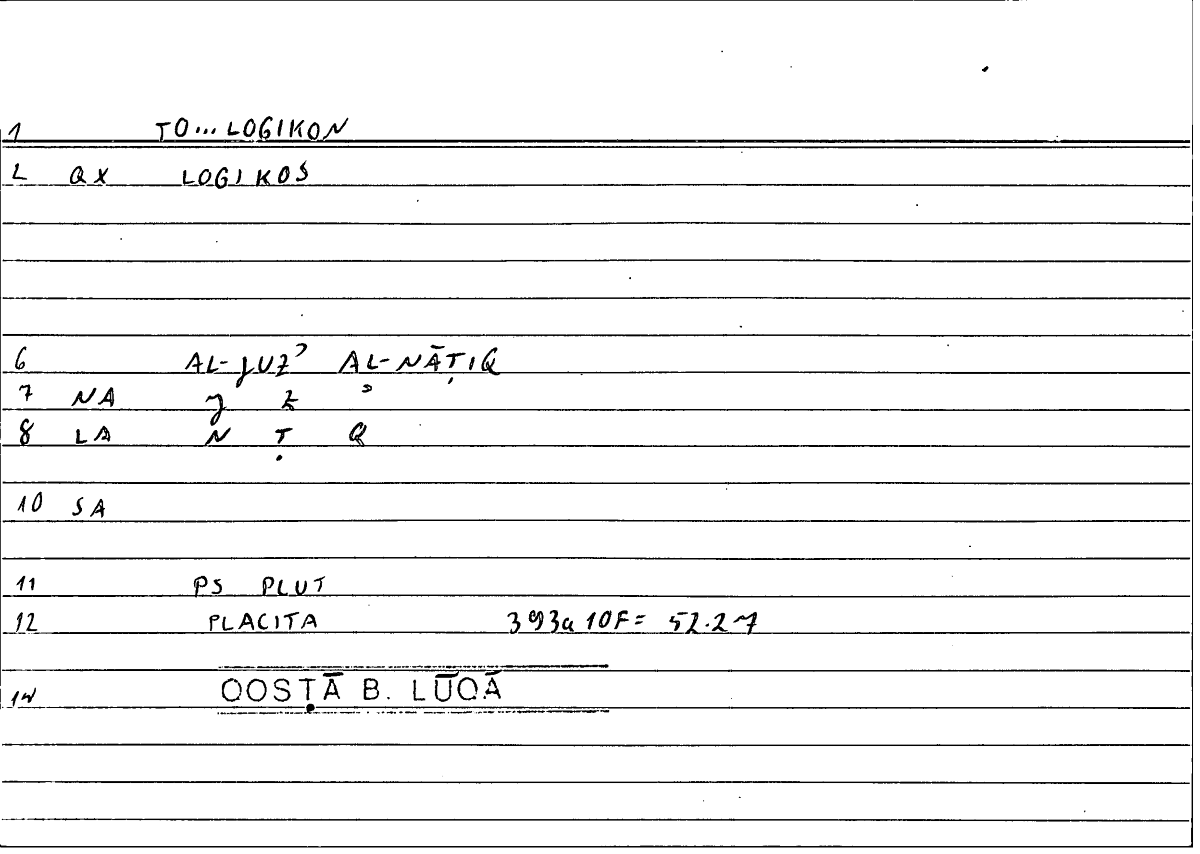 1 TO... LOGIKON
2 QX LOGIKOS
6 AL-JUZʾ AL-NĀṬIQ
7 NA J Z ʾ
8 LA N Ṭ Q
10 SA
11 PS PLUT
12 PLACITA 393a10F= 52.27
14 QOSṬĀ B. LŪQĀ